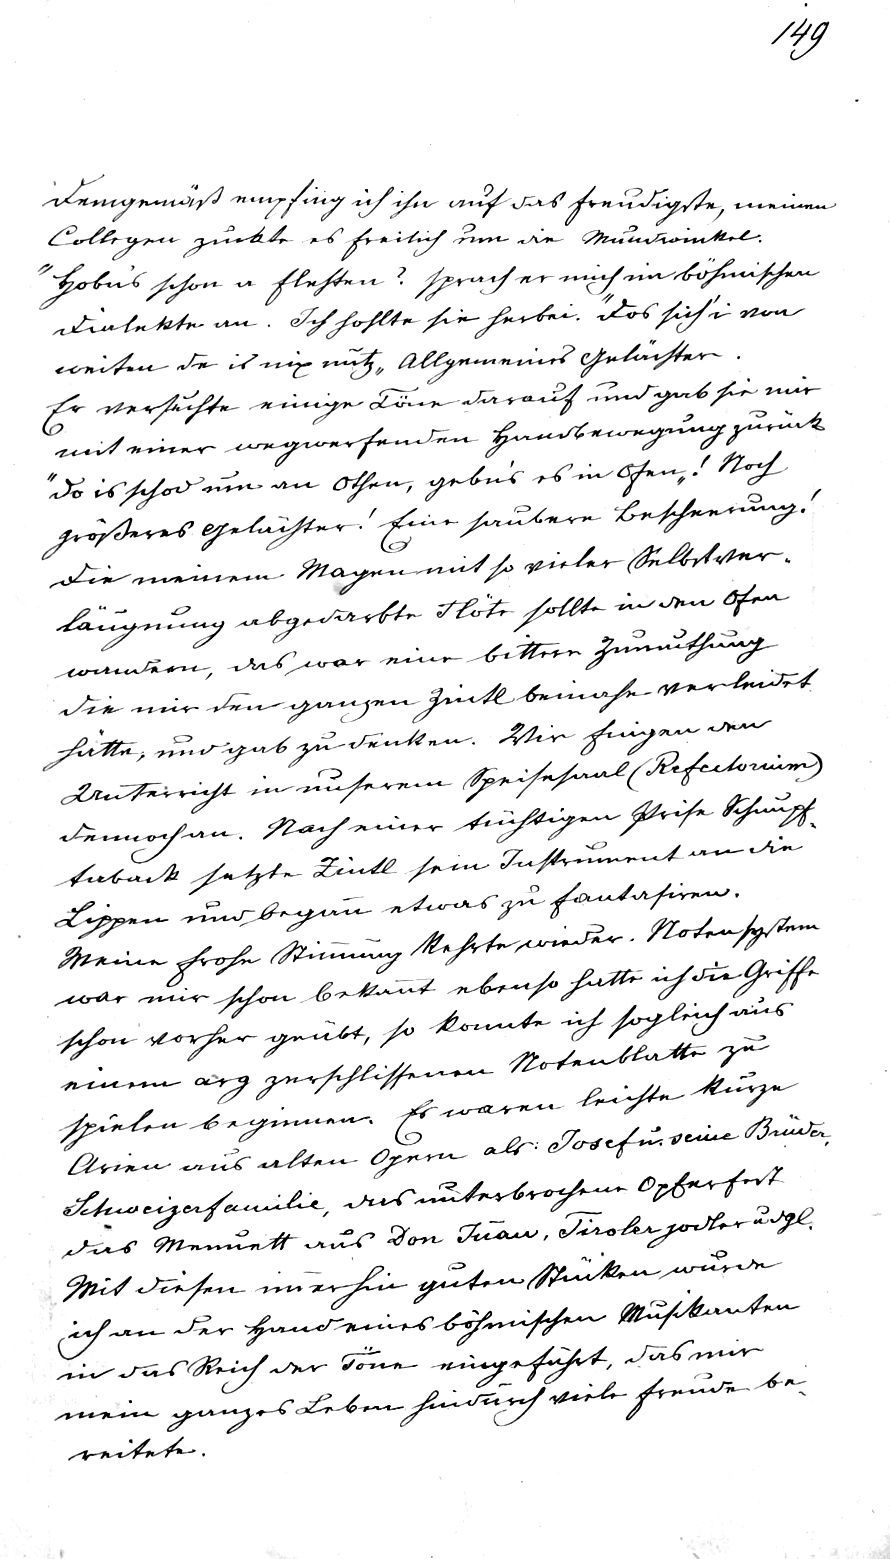 149
Demgemäß empfing ich ihn auf das freudigste, meinen
Collegen zuckte es freilich um die Mundwinkel.
"Hobn's schon a Flehten? sprach er mich im böhmischen
Dialekte an. Ich hohlte sie herbei. "Dos sich' i von
weiten de is nix nutz„ Allgemeines Gelächter.
Er versuchte einige Töne darauf und gab sie mir
mit einer wegwerfenden Handbewegung zurück
"do is schod um an Othen, gebn's es in Ofen„! Noch
größeres Gelächter! Eine saubere Bescheerung!
Die meinem Magen mit so vieler Selbstver-
läugnung abgedarbte Flöte sollte in den Ofen
wandern, das war eine bittere Zumuthung
die mir den ganzen Zintl beinahe verleidet
hätte, und gab zu denken. Wir fingen den
Unterricht in unserem Speisesaal (Refectorium)
dennoch an. Nach einer tüchtigen Prise Schnupf-
taback setzte Zintl sein Instrument an die
Lippen und began̅ etwas zu fantasiren.
Meine frohe Stim̅ung kehrte wieder. Notensystem
war mir schon bekan̅t ebenso hatte ich die Griffe
schon vorher geübt, so konnte ich sogleich aus
einem arg zerschlissenen Notenblatte zu
spielen beginnen. Es waren leichte kurze
Arien aus alten Opern als: Josef u. seine Brüder,
Schweizerfamilie, das unterbrochene Opferfest
das Menuett aus Don Juan, Tiroler jodler u dgl.
Mit diesen im̅erhin guten Stücken wurde
ich an der Hand eines böhmischen Musikanten
in das Reich der Töne eingeführt, das mir
mein ganzes Leben hindurch viele Freude be-
reitete.